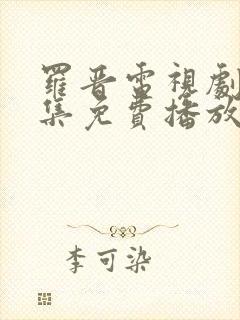 羅晋雷視劇
集免費播放
李可染